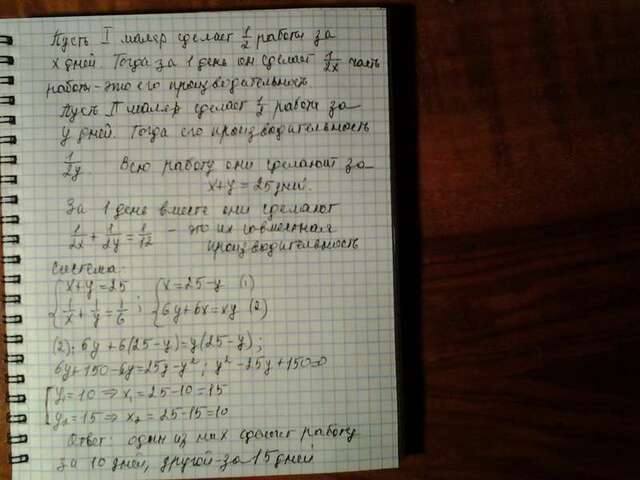 Пусть I маляр сделает 1/2 работы за
x дней. Тогда за 1 день он сделает 1/2x часть
работы - это его производительность.
Пусть II маляр сделает 1/2 работы за
y дней. Тогда его производительность
1/2y. Всю работу они сделают за
x+y = 25 дней.
За 1 день вместе они сделают
1/2x + 1/2y = 1/12 - это их совместная
производительность
Система:
{x+y=25 {x=25-y (1)
{1/x + 1/y = 1/6 ; {6y+6x=xy (2)
(2): 6y+6(25-y)=y(25-y);
6y+150-6y=25y-y²; y²-25y+150=0
[y₁=10 ⇒ x₁=25-10=15
y₂=15 ⇒ x₂=25-15=10
Ответ: один из них сделает работу
за 10 дней, другой - за 15 дней